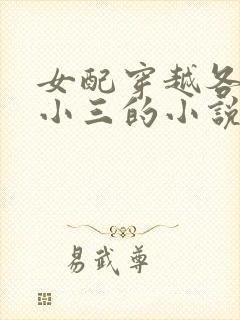 女配穿越各
小三的小說
易武尊